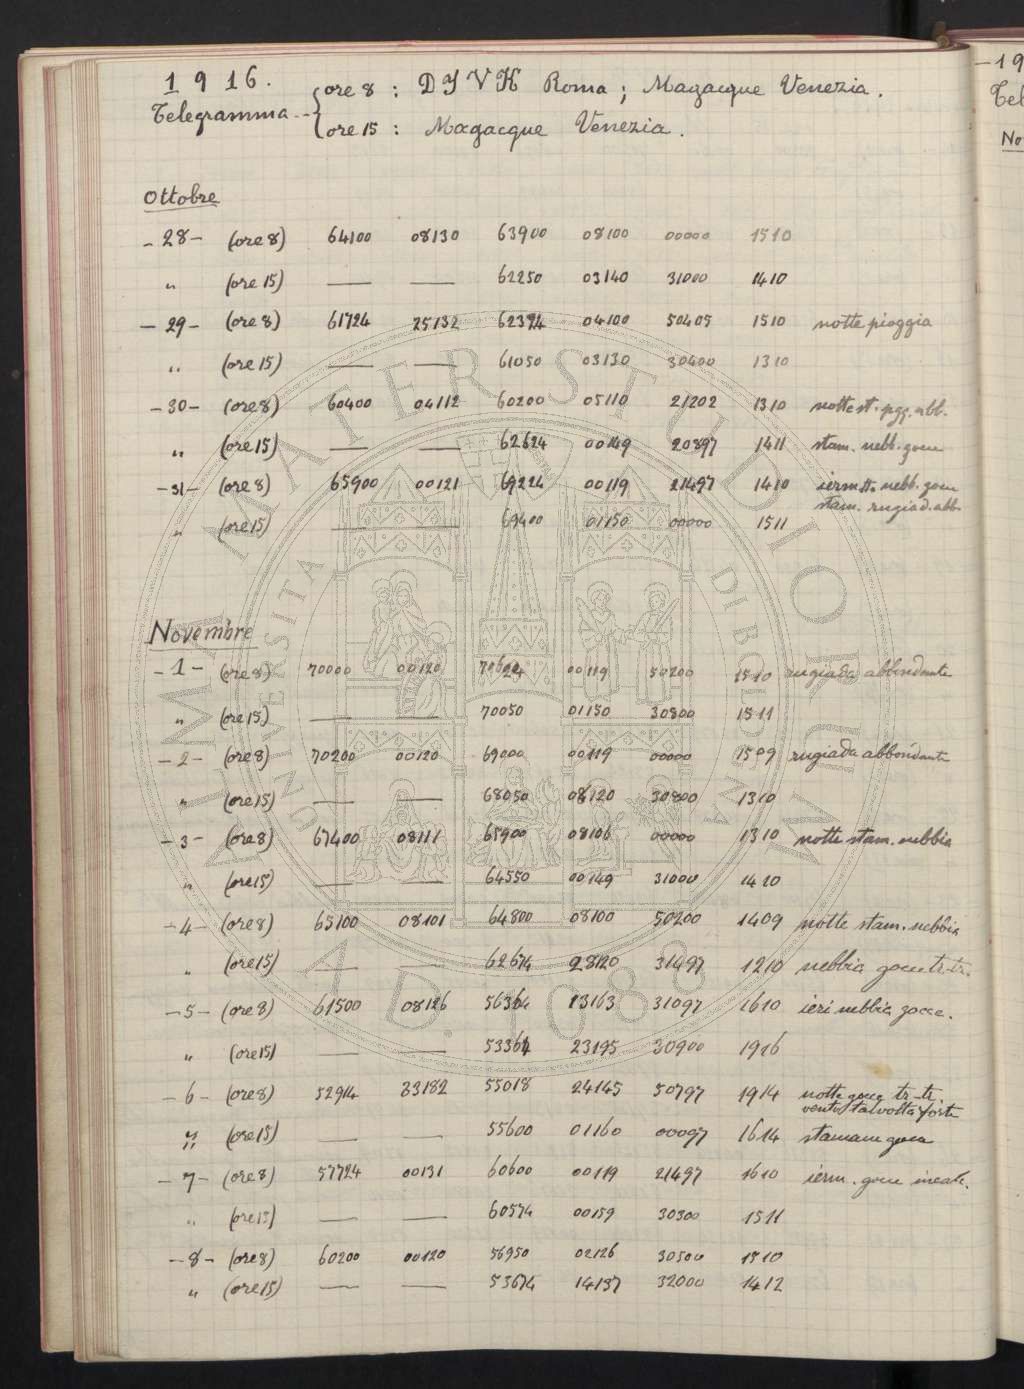 1916.
Telegramma -- { ore 8 : DYVK Roma ; Magacque Venezia .
ore 15 : Magacque Venezia .
Ottobre
- 28 - (ore 8) 64100 08130 63900 08100 00000 1510
" (ore 15) — — 62250 03140 31000 1410
- 29 - (ore 8) 61724 25132 62324 04100 50405 1510 notte pioggia
" (ore 15) — — 61050 03130 30400 1310
- 30 - (ore 8) 60400 04112 60200 05110 21202 1310 notte st. pgg. abb.
" (ore 15) — — 62624 00149 20897 1411 stam. nebb. gocce
- 31 - (ore 8) 65900 00121 69224 00119 21497 1410 nebb. gocce
stam. rugiad. abb.
" (ore 15) — — 69400 01150 00000 1511
Novembre
- 1 - (ore 8) 70000 00120 00119 50200 1510 rugiada abbondante
" (ore 15) — — 70050 01150 30800 1511
- 2 - (ore 8) 70200 00120 69000 00119 00000 1509 rugiada abbondante
" (ore 15) — — 68050 08120 30800 1310
- 3 - (ore 8) 67400 08111 65900 08106 00000 1310 notte stam. nebbia
" (ore 15) — — 64550 00149 31000 1410
- 4 - (ore 8) 65100 08101 64800 08100 50200 1409 notte stam. nebbia
" (ore 15) — — 62674 28120 31497 1210 nebbia gocce tr-tr.
- 5 - (ore 8) 61500 08126 56364 13163 31097 1610 ieri nebbia gocce.
" (ore 15) — — 53364 23195 30900 1916
- 6 - (ore 8) 52914 33182 55018 24145 50797 1914 notte gocce tr-tr.
vento talvolta forte
" (ore 15) — — 55600 01160 00097 1614 stamane gocce
- 7 - (ore 8) 57724 00131 60600 00119 21497 1610 ierm. gocce
" (ore 15) — — 60574 00159 30300 1511
- 8 - (ore 8) 60200 00120 56950 02126 30500 1510
" (ore 15) — — 53674 14137 32000 1412
ALMA MATER STUDIORUM
UNIVERSITÀ DI BOLOGNA
A.D. 1088
- 19
Tel
No